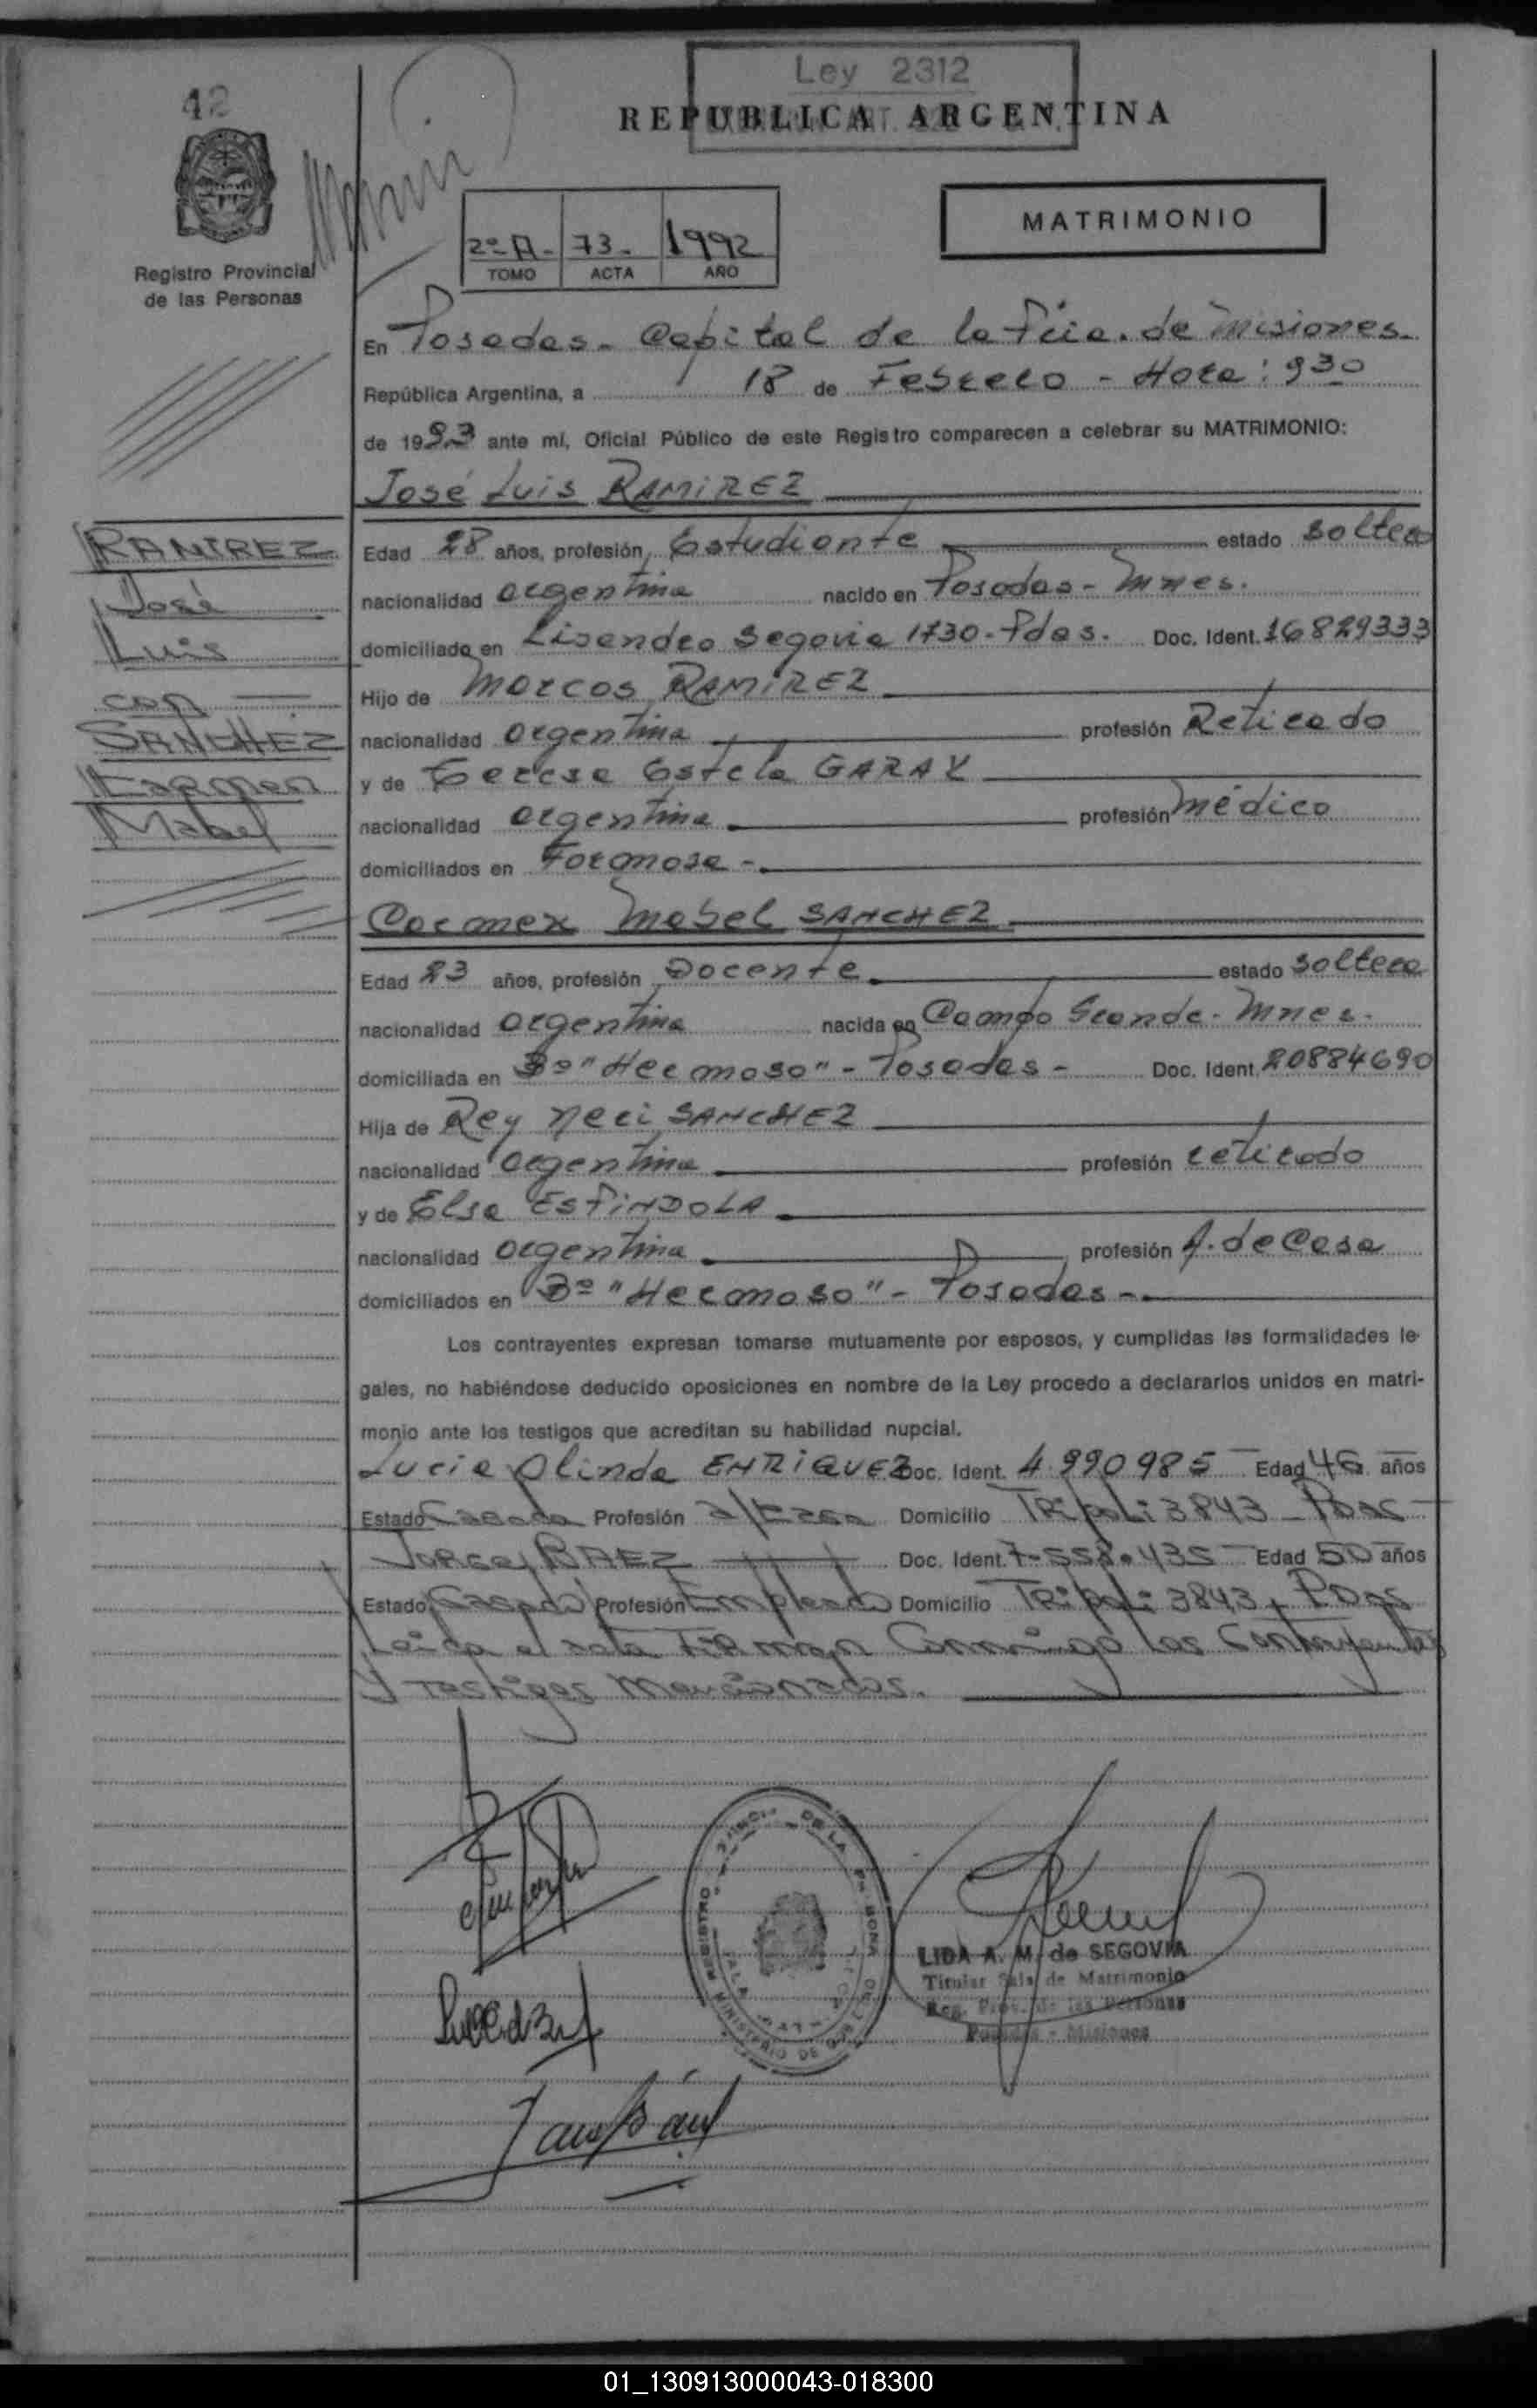 42
Ley 2312
REPUBLICA ARGENTINA
MATRIMONIO
2º A- 73- 1992
TOMO ACTA AÑO
Registro Provincial
de las Personas
En Posadas - Capital de la Pcia. de Misiones
República Argentina, a 18 de Febrero - Hora: 930
de 1993 ante mí, Oficial Público de este Registro comparecen a celebrar su MATRIMONIO:
José Luis RAMIREZ
RAMIREZ
José
Luis
con
SANCHEZ
Karmen
Mabel
Edad 28 años, profesión Estudiante estado soltero
nacionalidad argentina nacido en Posadas - Mnes.
domiciliado en Lisandro Segovia 1730 - Pdas. Doc. Ident. 16829333
Hijo de Marcos RAMIREZ
nacionalidad argentina profesión Retirado
y de Teresa Estela GARAY
nacionalidad argentina profesión médico
domiciliados en Formosa -
Carmen Mabel SANCHEZ
Edad 23 años, profesión Docente estado soltera
nacionalidad argentina nacida en Campo Grande - Mnes.
domiciliada en Bº "Hermoso" - Posadas - Doc. Ident. 20884690
Hija de Rey Neri SANCHEZ
nacionalidad argentina profesión retirado
y de Elsa ESPINDOLA
nacionalidad argentina profesión A. de Casa
domiciliados en Bº "Hermoso" - Posadas -
Los contrayentes expresan tomarse mutuamente por esposos, y cumplidas las formalidades le-
gales, no habiéndose deducido oposiciones en nombre de la Ley procedo a declararlos unidos en matri-
monio ante los testigos que acreditan su habilidad nupcial.
Lucia Olinda ENRIQUEZ Doc. Ident. 4.990985 Edad 46 años
Estado Casada Profesión Domicilio Tripoli 3843 - Pdas
Jorge BAEZ Doc. Ident. 7-558.435 Edad 50 años
Estado Casado Profesión Empleado Domicilio Tripoli 3843, Pdas
Leida el acta Firman Conmigo los Contrayentes
y Testigos Mencionados.
LIDA A. M. de SEGOVIA
Titular Sala de Matrimonio
Reg. Prov. de las Personas
Posadas - Misiones
01_130913000043-018300